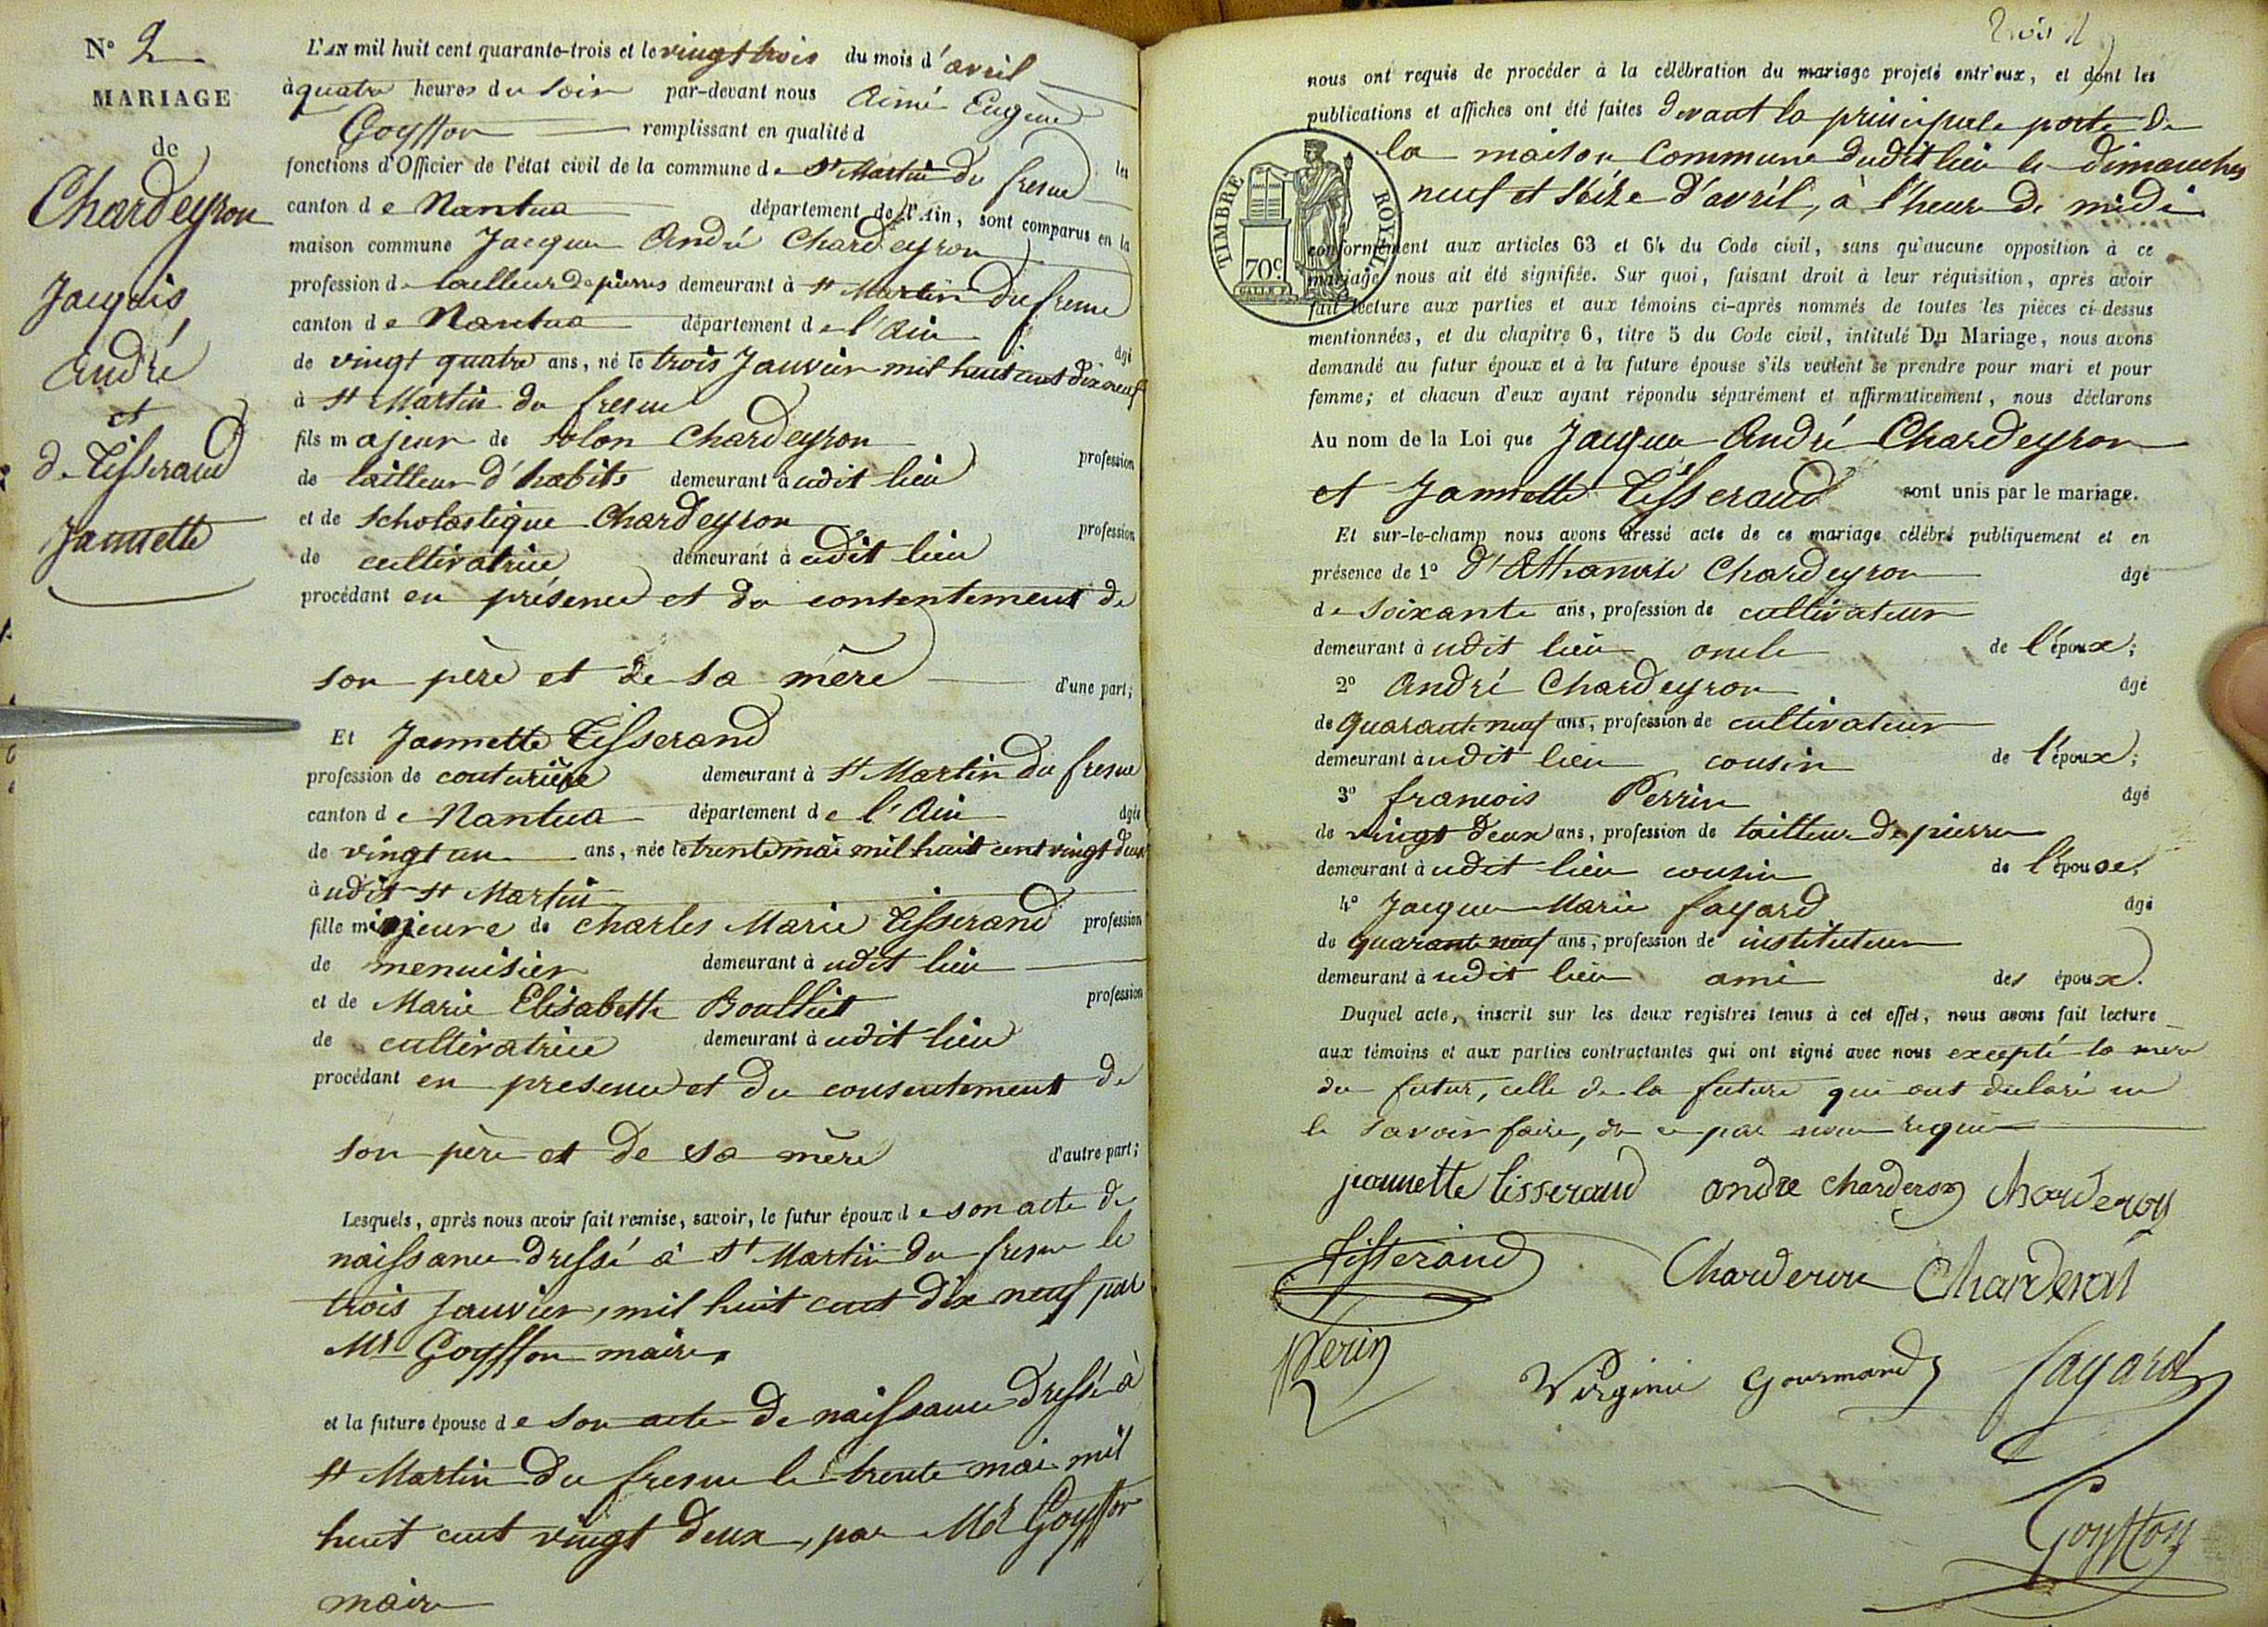 N° 2
MARIAGE
de
Chardeyron
Jacques
André
et
de Tisserand
Jannette
L'AN mil huit cent quarante-trois et le vingt trois du mois d'avril
à quatre heures du soir par-devant nous Aimé Eugène
Goyffon remplissant en qualité d
les
fonctions d'Officier de l'état civil de la commune de St Martin du fresne
canton de Nantua département de l'Ain, sont comparus en la
maison commune Jacques André Chardeyron
profession de tailleur de pierres demeurant à St Martin du fresne
canton de Nantua département de l'Ain
âgé
de vingt quatre ans, né le trois Janvier mil huit cent dix neuf
à St Martin du fresne
fils majeur de Solon Chardeyron
profession
de tailleur d'habits demeurant à udit lieu
et de Scholastique Chardeyron
profession
de cultivatrice demeurant à udit lieu
procédant en présence et du contentement de
son père et de sa mère d'une part;
Et Jannette Tisserand
profession de couturière demeurant à St Martin du fresne
canton de Nantua département de l'Ain âgée
de vingt un ans, née le trente mai mil huit cent vingt deux
à udit St Martin
fille mineure de Charles Marie Tisserand profession
de menuisier demeurant à udit lieu
et de Marie Elisabeth Boulliet profession
de cultivatrice demeurant à udit lieu
procédant en presence et du consentement de
son père et de sa mère d'autre part;
Lesquels, après nous avoir fait remise, savoir, le futur époux de son acte de
naissance dressé à St Martin du fresne le
trois Janvier, mil huit cent dix neuf par
Mr Goyffon maire,
et la future épouse de son acte de naissance dressé à
St Martin du fresne le trente mai mil
huit cent vingt deux, par Mr Goyffon
maire
nous ont requis de procéder à la célébration du mariage projeté entr'eux, et dont les
publications et affiches ont été faites devant la principale porte de
la maison Commune dudit lieu les dimanches
neuf et seize d'avril, à l'heure de midi
TIMBRE ROYAL
70c
conformément aux articles 63 et 64 du Code civil, sans qu'aucune opposition à ce
mariage nous ait été signifiée. Sur quoi, faisant droit à leur réquisition, après avoir
fait lecture aux parties et aux témoins ci-après nommés de toutes les pièces ci-dessus
mentionnées, et du chapitre 6, titre 5 du Code civil, intitulé Du Mariage, nous avons
demandé au futur époux et à la future épouse s'ils veulent se prendre pour mari et pour
femme; et chacun d'eux ayant répondu séparément et affirmativement, nous déclarons
Au nom de la Loi que Jacques André Chardeyron
et Jannette Tisserand sont unis par le mariage.
Et sur-le-champ nous avons dressé acte de ce mariage célébré publiquement et en
présence de 1° d'Athanase Chardeyron âgé
de soixante ans, profession de cultivateur
demeurant à udit lieu oncle de l'époux;
2° André Chardeyron âgé
de quarante neuf ans, profession de cultivateur
demeurant à udit lieu cousin de l'époux;
3° francois Perrin âgé
de vingt deux ans, profession de tailleur de pierre
demeurant à udit lieu cousin de l'épouse,
4° Jacques Marie fayard âgé
de quarante neuf ans, profession de instituteur
demeurant à udit lieu ami des époux.
Duquel acte, inscrit sur les deux registres tenus à cet effet, nous avons fait lecture
aux témoins et aux parties contractantes qui ont signé avec nous excepté la mère
du futur, celle de la future qui ont déclaré ne
le savoir faire, de ce par nous requis
jeannette tisserand andre charderon Charderon
Tisserand Charderon Charderon
Perin Virginie Gourmand fayard
Goyffon